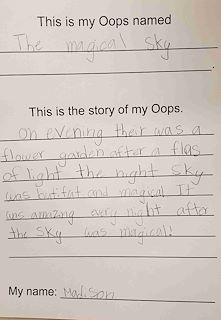 This is my Oops named
The magical sky
This is the story of my Oops.
On evening their was a
flower garden after a flas
of light the night sky
was butifat and magical It
was amazing every night after
the sky was magical!
My name: Madison